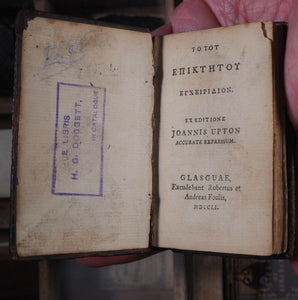 EX LIBRIS
H. G. DOGGETT,
IN CATALOGUE
ΤΟ ΤΟΥ
ΕΠΙΚΤΗΤΟΥ
ΕΓΧΕΙΡΙΔΙΟΝ.
EX EDITIONE
JOANNIS UPTON
ACCURATE EXPRESSUM.
GLASGUAE,
Excudebant Robertus et
Andreas Foulis,
MDCCLI.